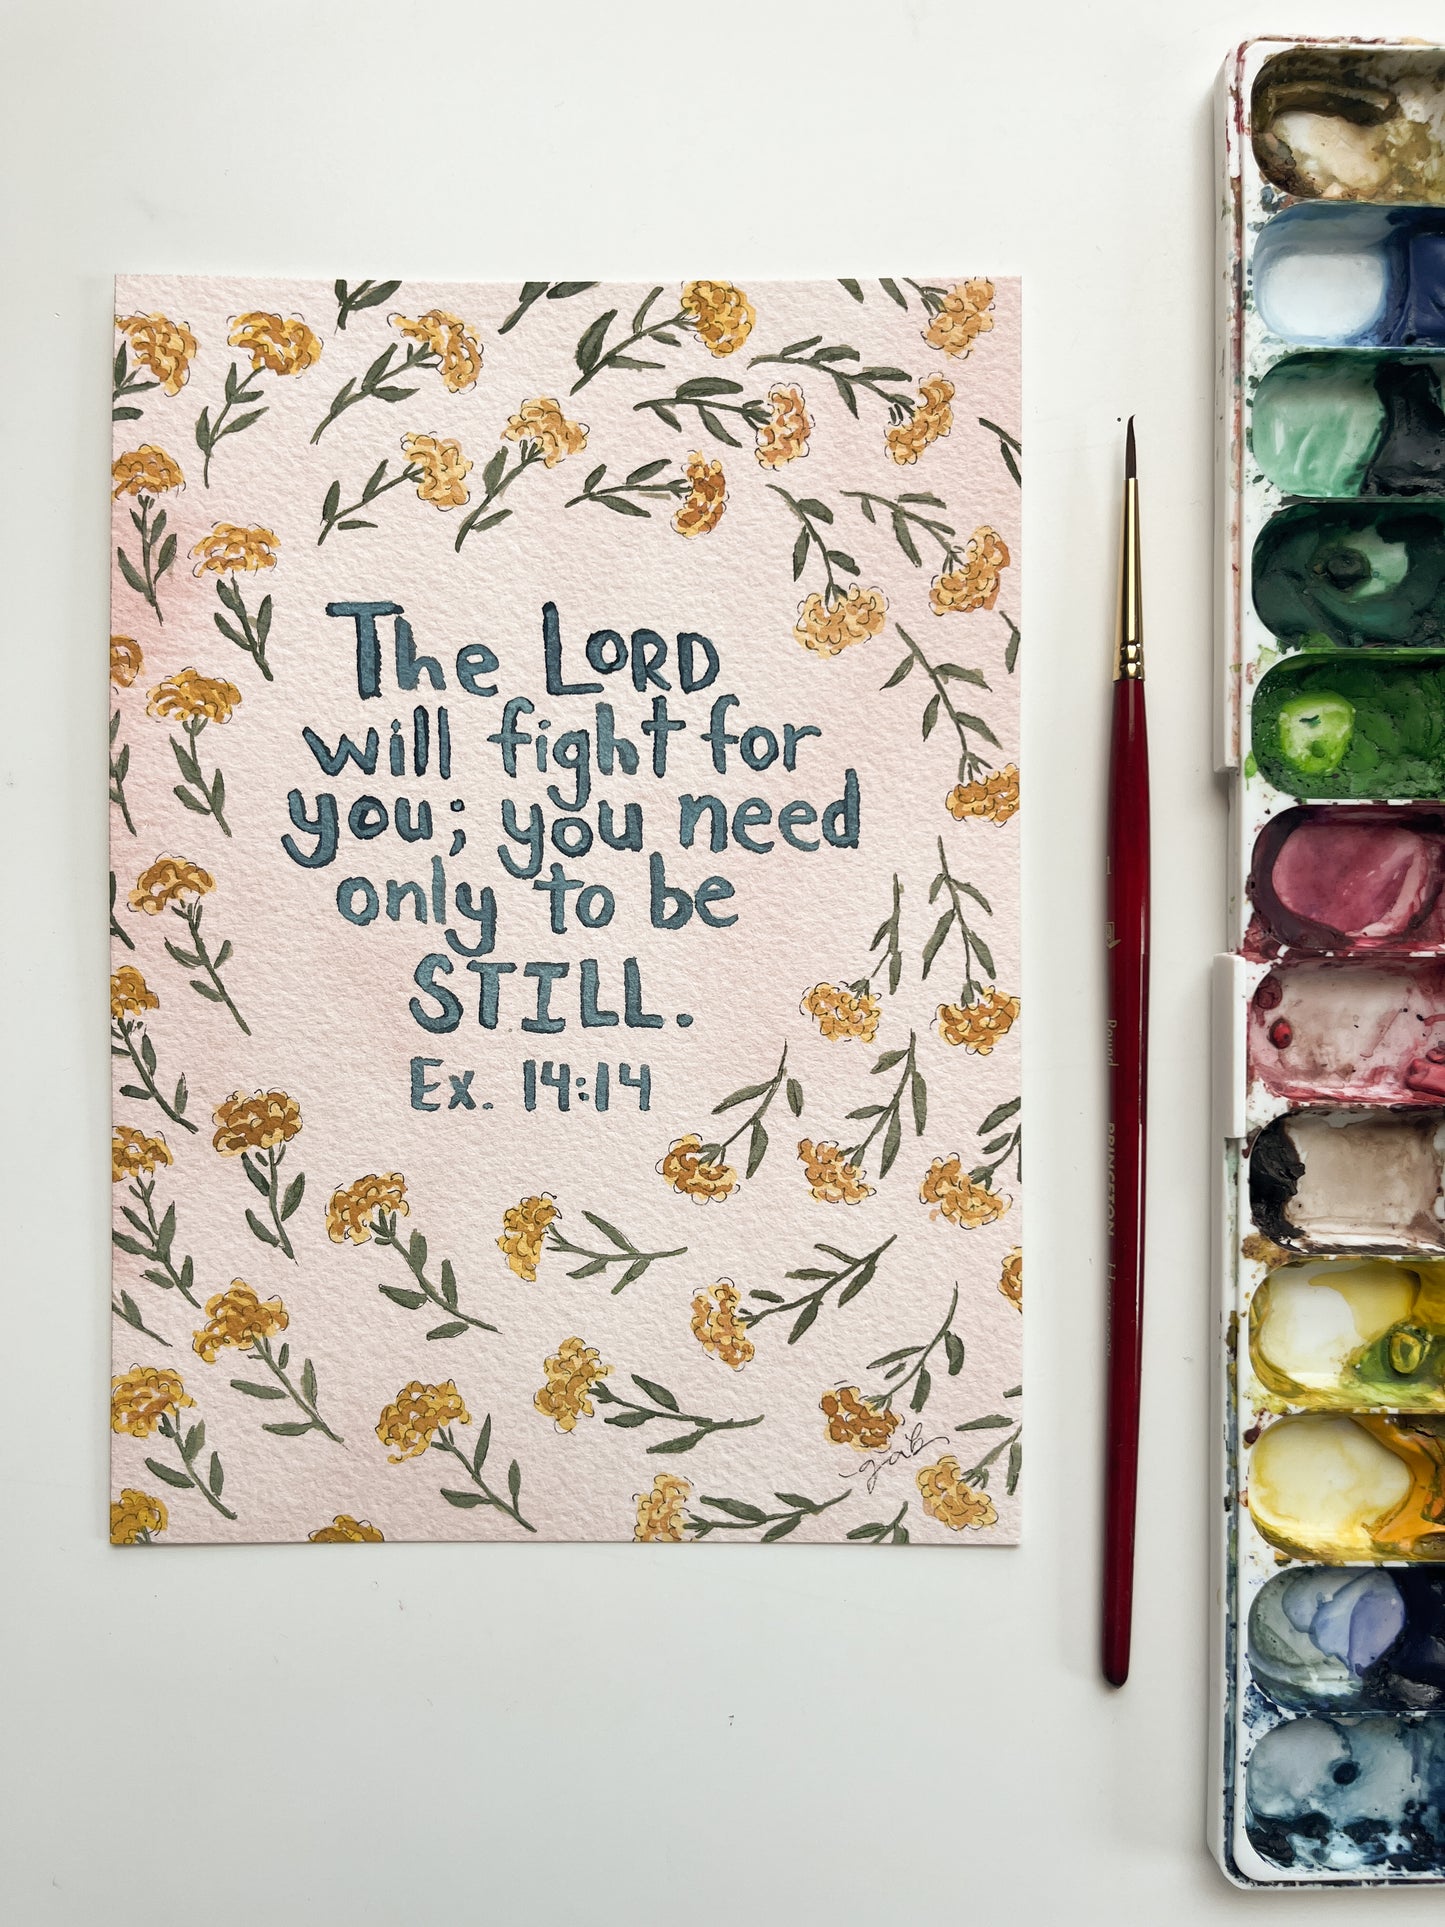 The LORD
will fight for
you; you need
only to be
STILL.
Ex. 14:14
1
Round
PRINCETON